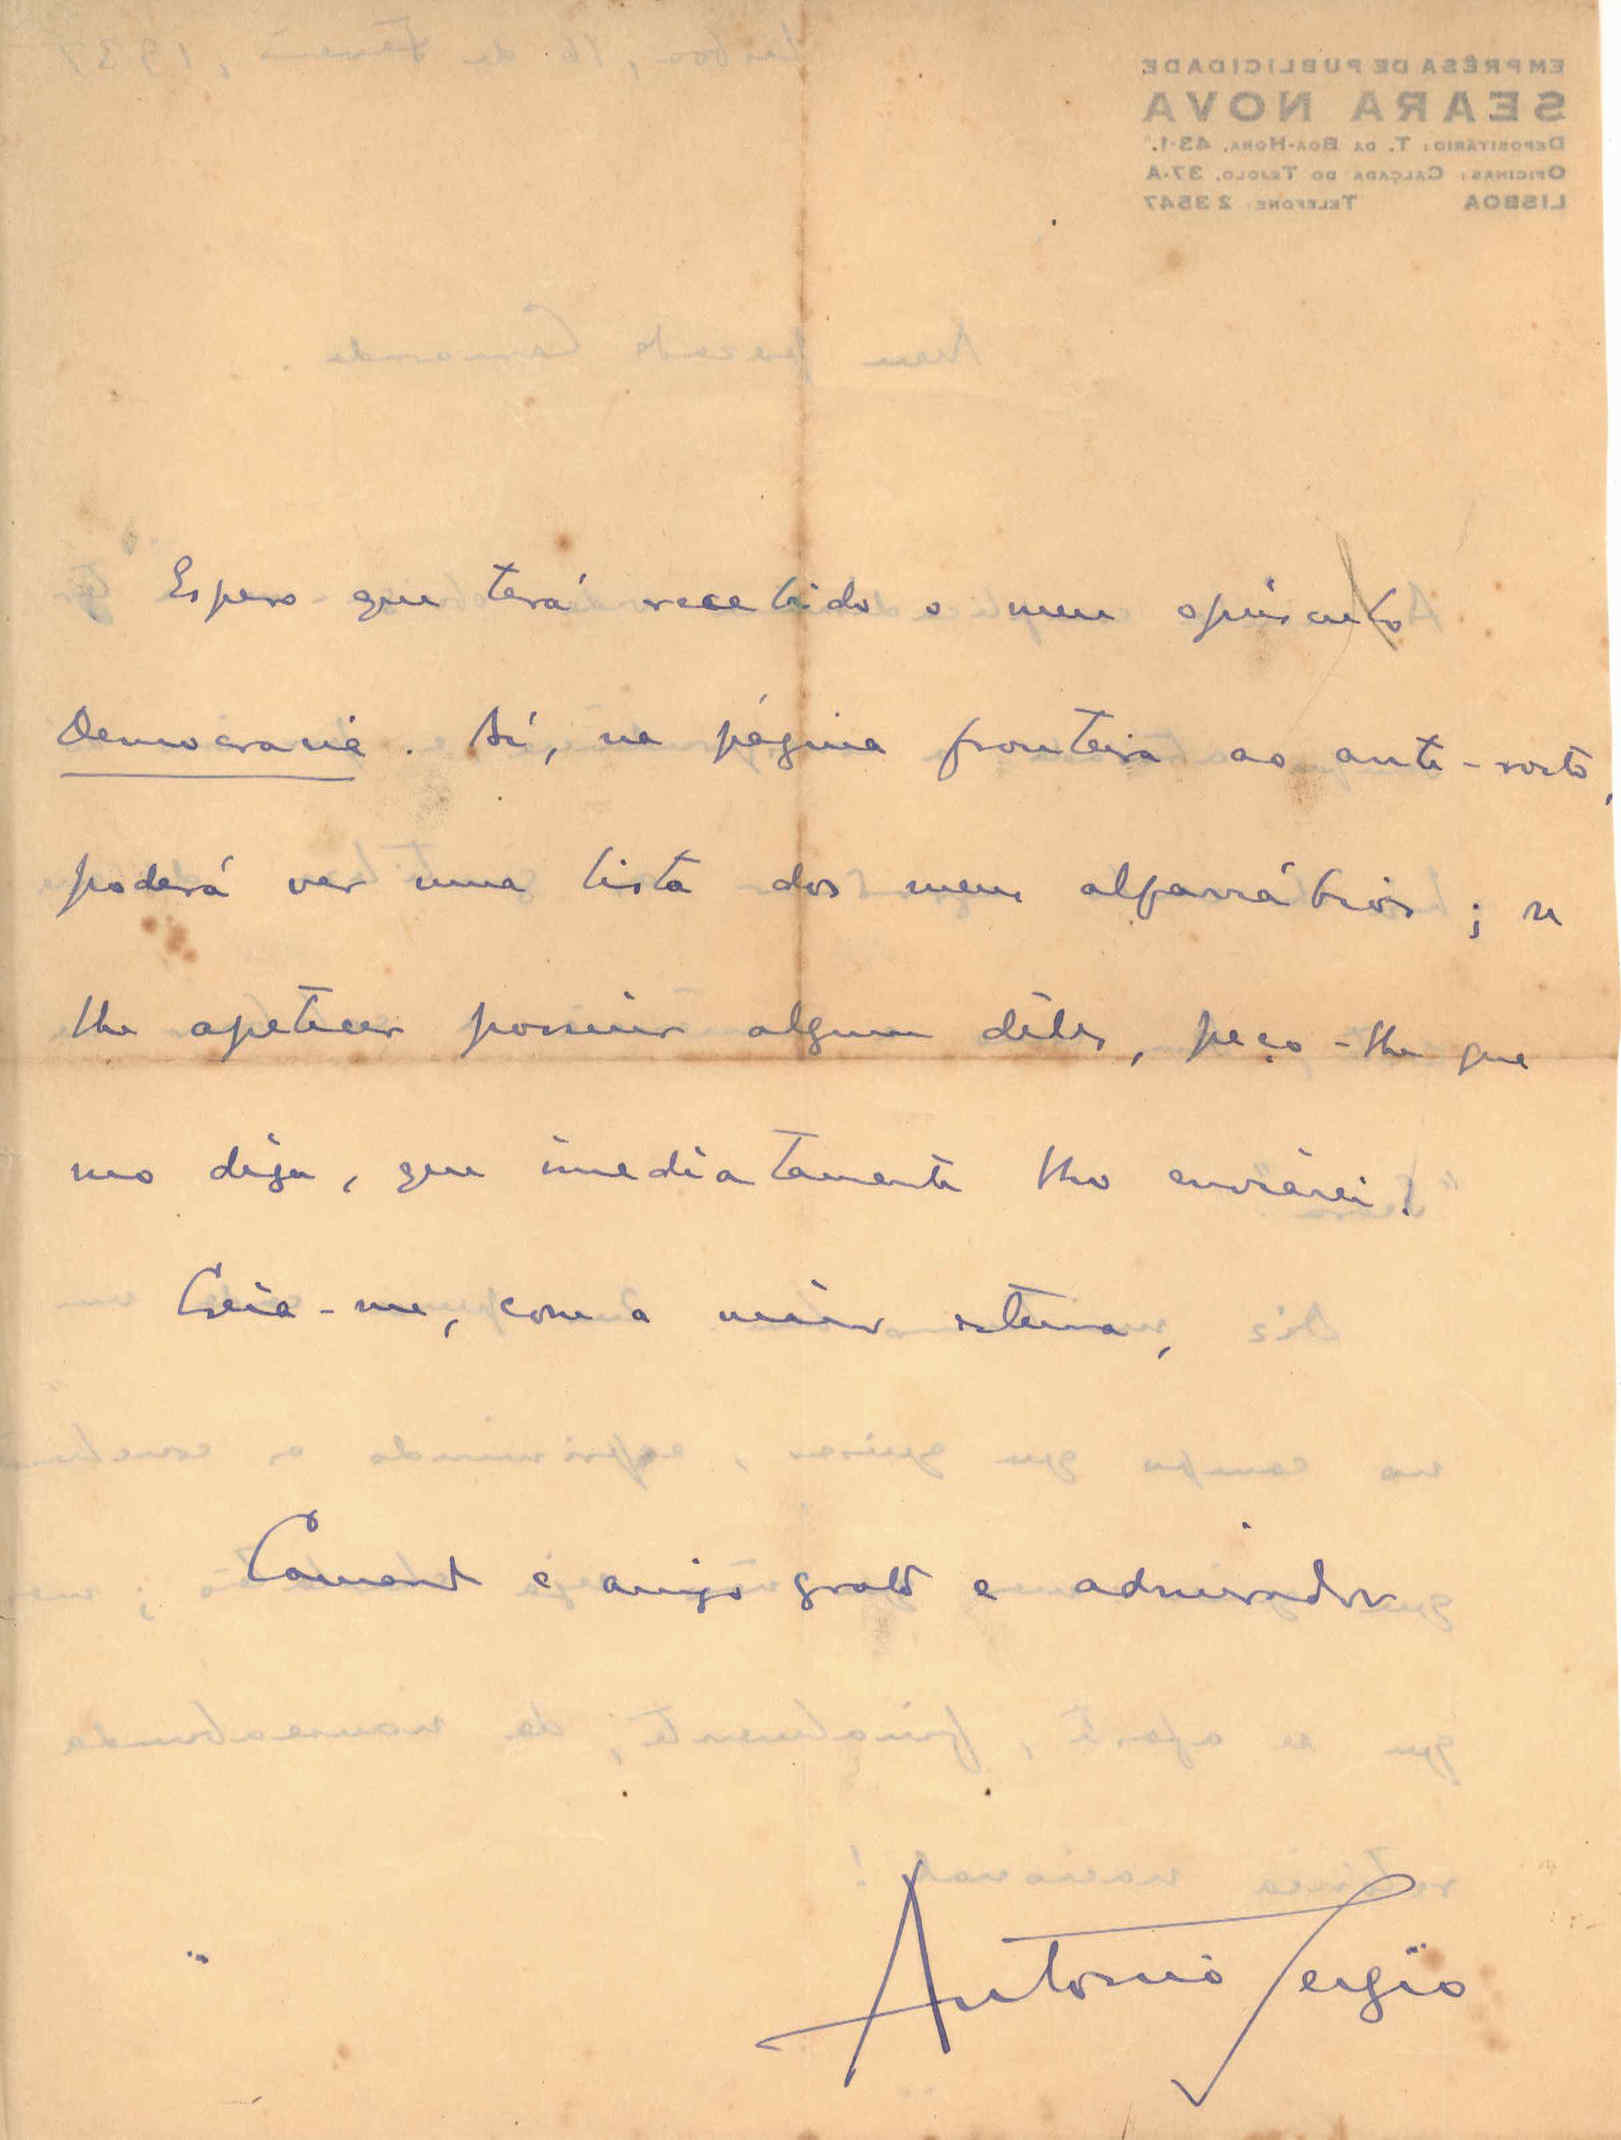 Lisboa, 16 de 1937
EMPRÊSA DE PUBLICIDADE
SEARA NOVA
DEPOSITÁRIO: T. DA BOA-HORA, 43-1.º
OFICINAS: CALÇADA DO TEJOLO, 37-A
LISBOA TELEFONE: 2 3547
Meu prezado Camarada
Espero que terá recebido o meu opúsculo
Democracia. Aí, na página fronteira ao ante-rosto,
poderá ver uma lista dos meus alfarrábios; se
lhe apetecer possuir algum dêles, peço-lhe que
mo diga, que imediatamente lho enviarei!
Creia-me, com a maior estima,
no campo que quiser, exprimindo a
Camarada e amigo grato e admirador
que se aparte, finalmente, da nauseabunda
nacional!
Antonio Sergio